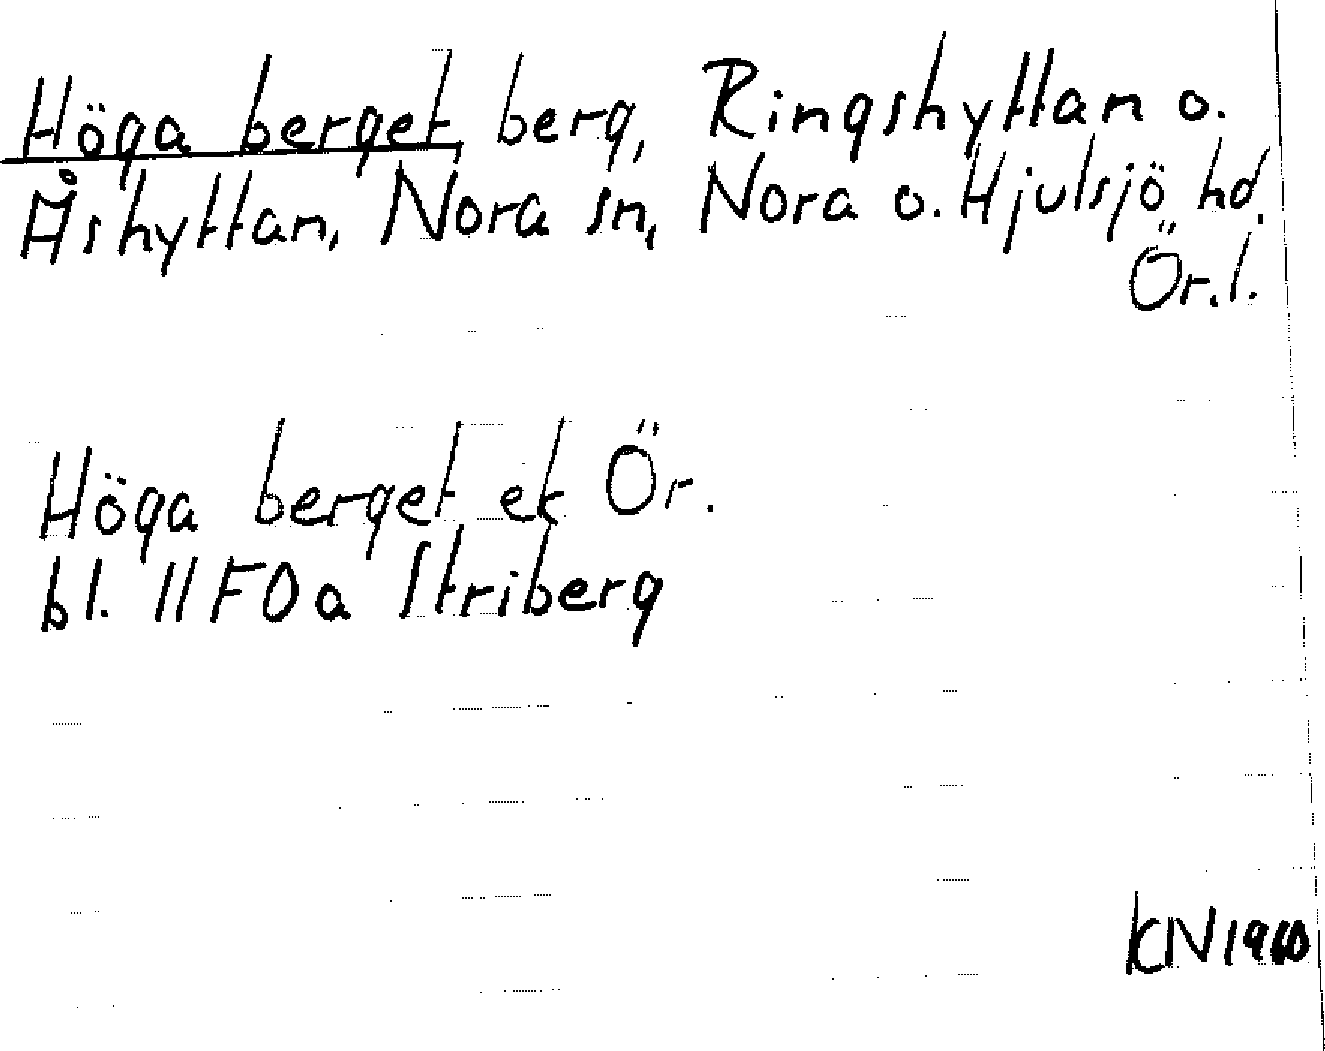 Höga berget berg, Ringshyttan o.
Åshyttan, Nora sn, Nora o. Hjulsjö hd.
Ör. l.
Höga berget ek Ör.
bl. 11 F 0 a Striberg
KN 1960